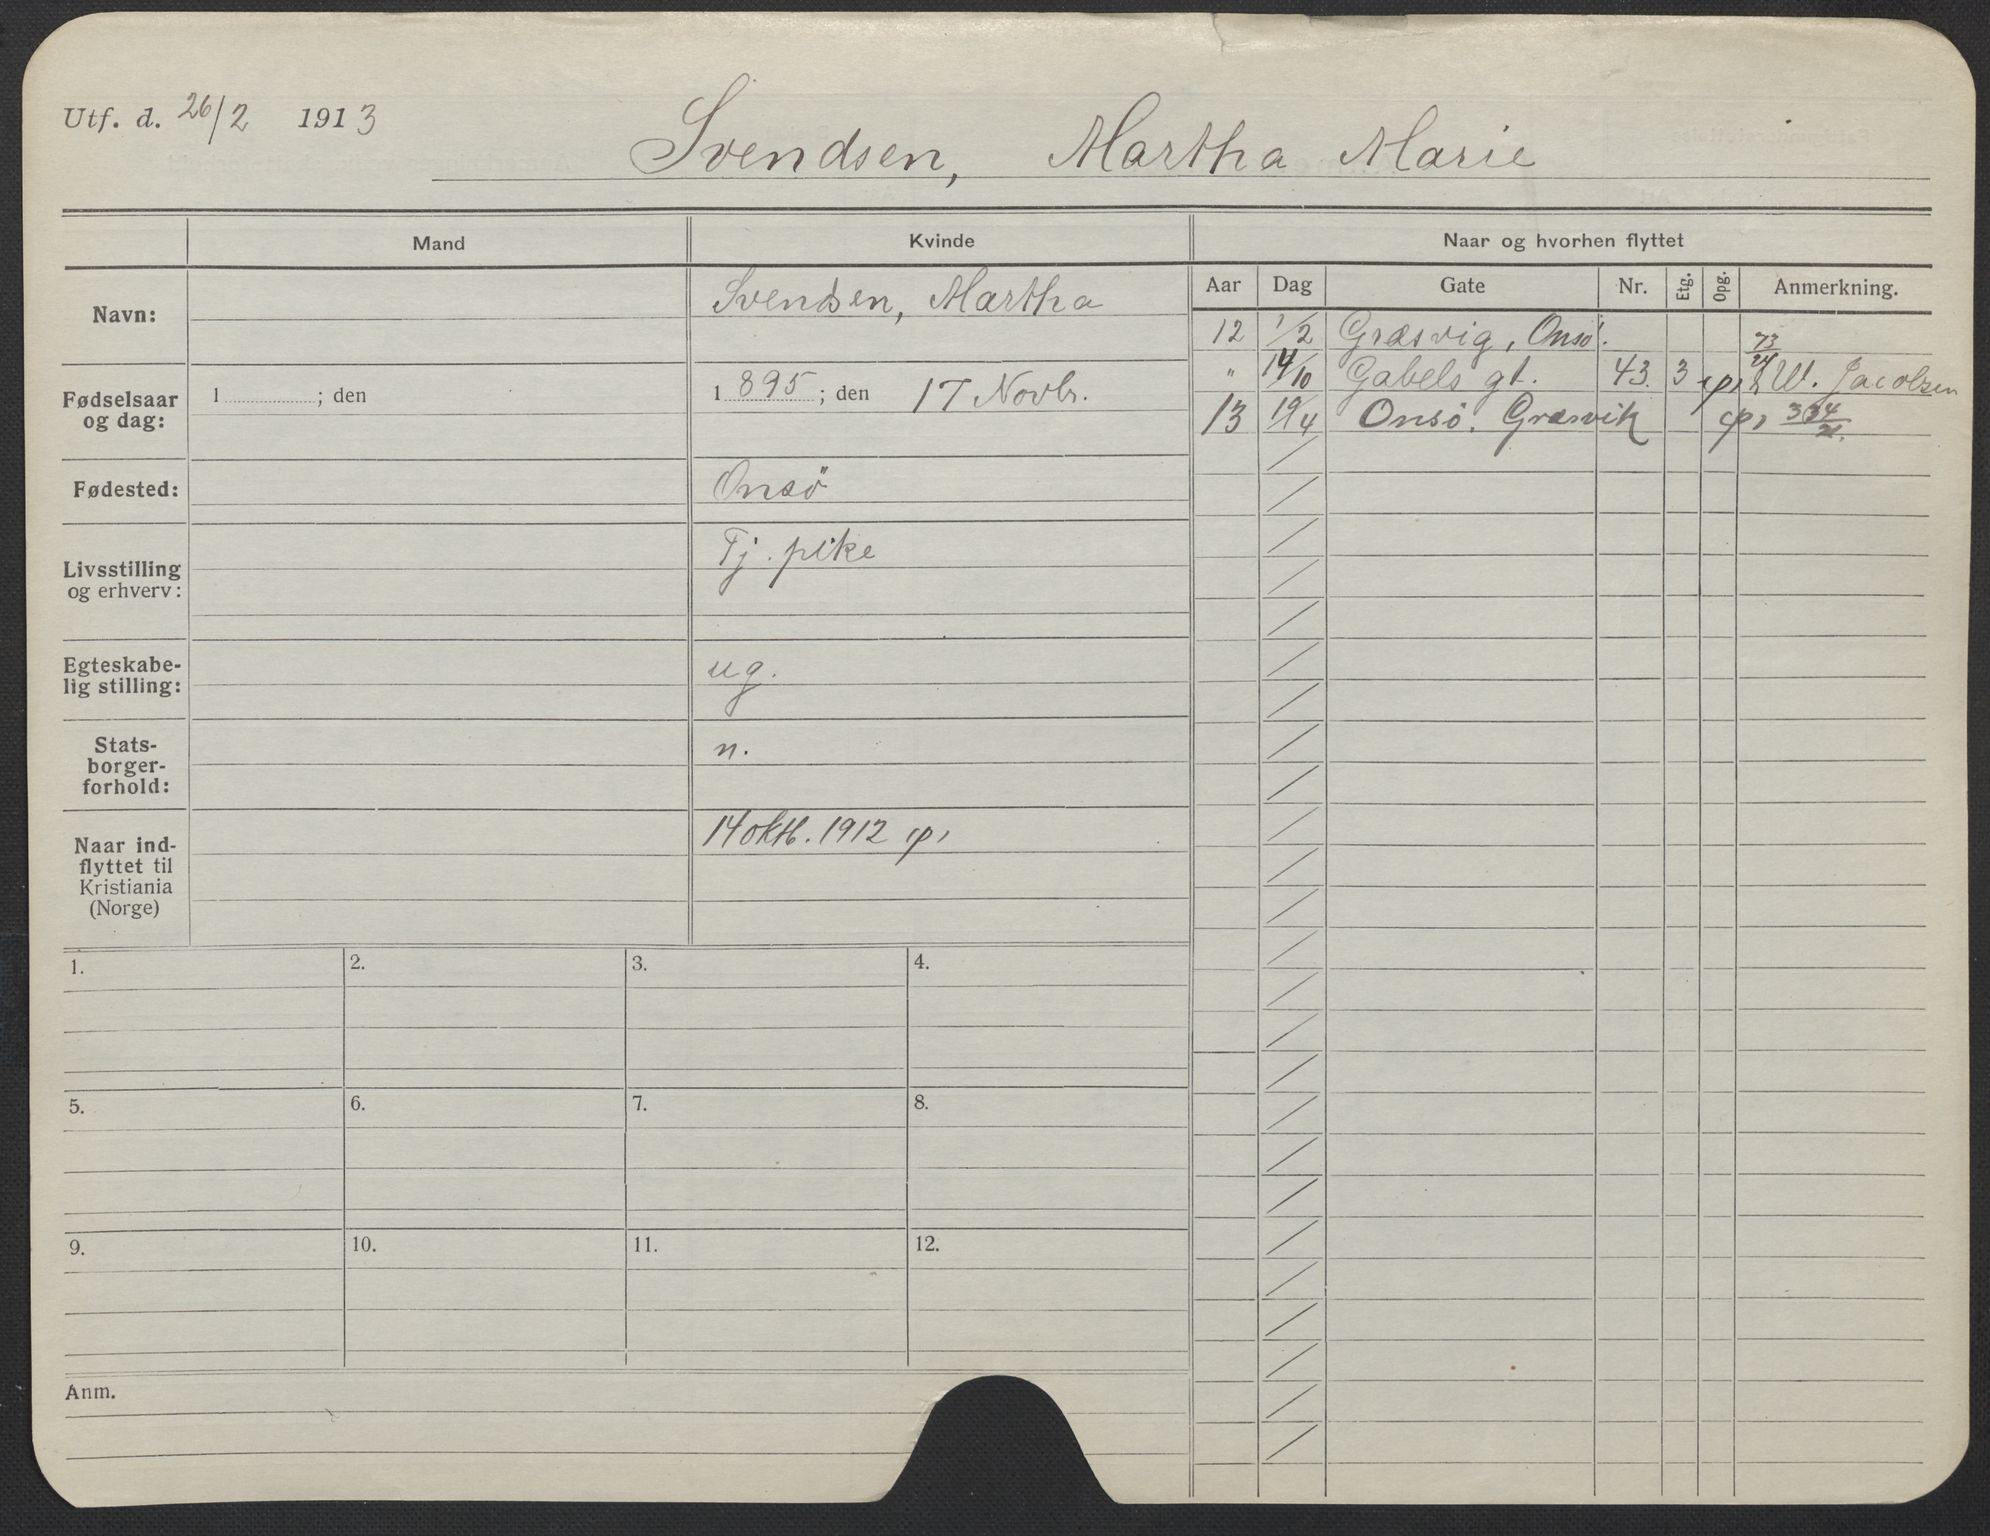 Utf. d. 26/2 1913
Svendsen, Martha Marie
Mand
Kvinde
Naar og hvorhen flyttet
Aar Dag Gate Nr. Etg. Opg. Anmerkning.
Navn:
Svendsen, Martha
12 1/2 Græsvig, Onsö.
" 14/10 Gabels gt. 43. 3 W. Jacobsen
13 19/4 Onsö. Græsvik
Fødselsaar og dag:
1 ; den
1 895 ; den 17 Novbr.
Fødested:
Onsö
Livsstilling og erhverv:
Tj. pike
Egteskabe-
lig stilling:
ug.
Stats-
borger-
forhold:
n.
Naar ind-
flyttet til
Kristiania
(Norge)
14 oktb. 1912
1. 2. 3. 4.
5. 6. 7. 8.
9. 10. 11. 12.
Anm.